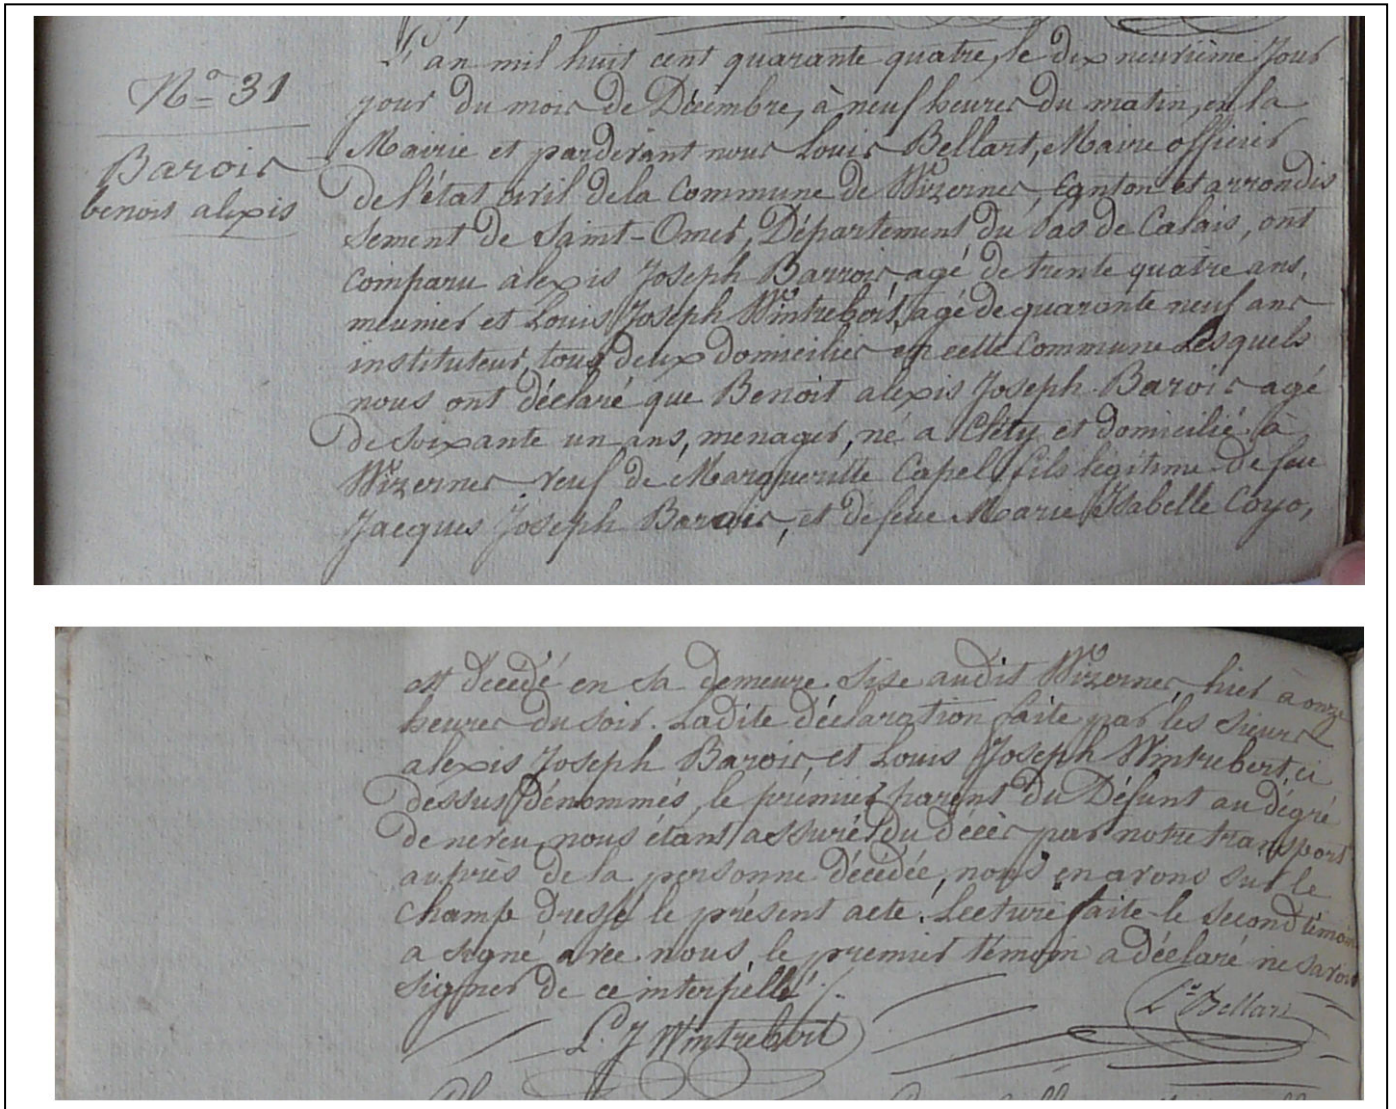 N° 31
Barois
benois alexis
L'an mil huit cent quarante quatre, le dix neuvième Jour
jour du mois de Décembre, à neuf heures du matin, en la
Mairie et pardevant nous Louis Bellart, Maire officier
de l'état civil de la Commune de Wizernes, Canton et arrondis
sement de Saint-Omer, Département du Pas de Calais, ont
comparu alexis Joseph Barrois, agé de trente quatre ans,
meunier et Louis Joseph Wintrebert, agé de quarante neuf ans
instituteur, tous deux domiciliés en cette Commune Lesquels
nous ont déclaré que Benoit alexis Joseph Barois agé
de soixante un ans, menager, né a Cléty et domicilié à
Wizernes veuf de Margueritte Capel fils légitime de feu
Jacques Joseph Barois, et de feue Marie Isabelle Coyo,
est décédé en sa demeure sise audit Wizernes, hier à onze
heures du soir. Ladite déclaration faite par les sieurs
alexis Joseph Barois et Louis Joseph Wintrebert, ci
dessus dénommés, le prémier parent du Défunt au dégré
de neveu, nous étant assuré du décès par notre transport
auprès de la personne décédée, nous en avons sur le
champ dressé le présent acte. Lecture faite le second témoin
a signé avec nous, le premier témoin a déclaré ne savoir
signer de ce interpellé.
L. J Wintrebert
Ls Bellart